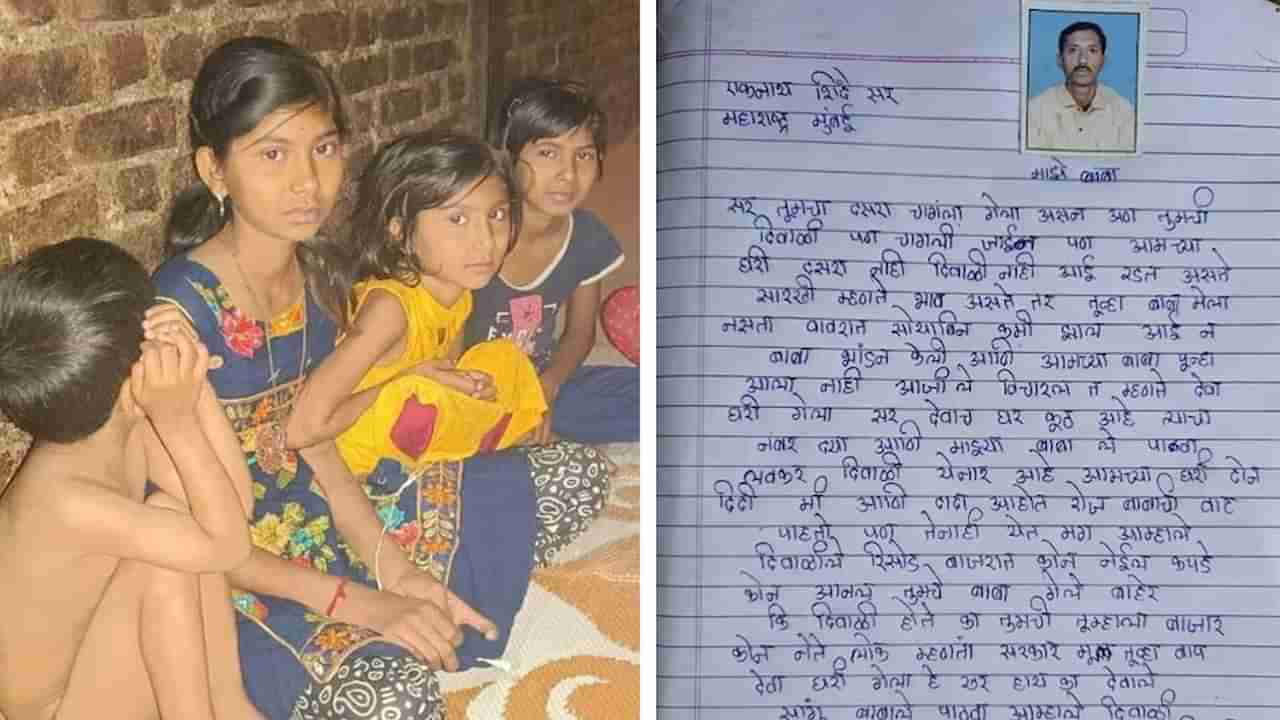 एकनाथ शिंदे सर
महाराष्ट्र मुंबई
माझे बाबा
सर तूमचा दसरा चागंला गेला असन अण तुमची
दिवाळी पण चागली जाईन पण आमच्या
घरी दसरा नाही दिवाळी नाही आई रडत असते
सारखी म्हणते भाव असते तर तूव्हा बाबा मेला
नसता वावरात सोयाबिन कमी झाल आई न
बाबा भांडन केली आणि आमच्या बाबा पून्हा
आला नाही आजीले विचारल त म्हणते देवा
घरी गेला सर देवाच घर कूठ आहे त्याचा
नंबर द्या आणि माझ्या बाबा ले पाठवा
लवकर दिवाळी येनार आहे आमच्या घरी दोन
दिदी मी आणि दादा आहोत रोज बाबाची वाट
पाहतो पण तेनाही येत मग आम्हाले
दिवाळीले रिसोड बाजरात कोन नेईल कपडे
कोन आनल तूमचे बाबा गेले बाहेर
कि दिवाळी होते का तुमची तूम्हाला बाजार
कोन नेते लोक म्हणतो सरकार मूळ तूव्हा बाप
देवा घरी गेला हे खर हाय का देवाले
सांगू बाबाले पाठवा आम्हाले दिवाळी